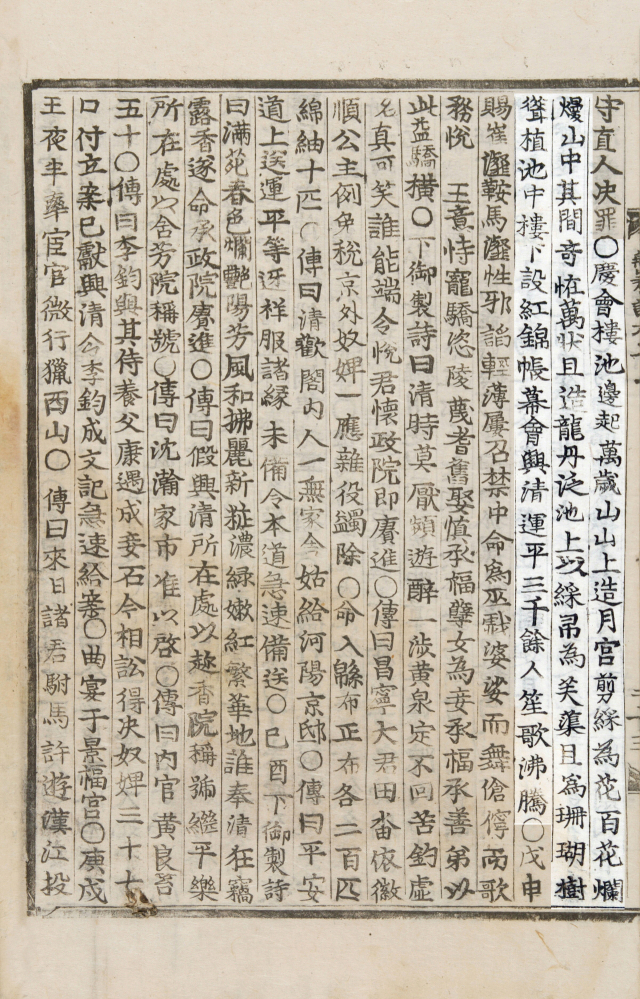 守直人决罪○慶會樓池邊起萬歲山山上造月宮剪綵為花百花爛
熳山中其間奇恠萬狀且造龍舟泛池上以綵帛為芙蕖且為珊瑚樹
聳植池中樓下設紅錦帳幕會興清運平三千餘人笙歌沸騰○戊申
賜崔瀣鞍馬瀣性邪諂輕薄屢召禁中命爲巫戱婆娑而舞傖儜而歌
務悅 王意恃寵驕恣陵蔑耆舊娶愼承福孽女為妾承福承善弟以
此益驕橫○下御製詩曰清時莫厭頻遊醉一涉黃泉定不回苦釣虛
名真可笑誰能端合悅君懷政院即賡進○傳曰昌寧大君田畓依徽
順公主例免稅京外奴婢一應雜役蠲除○命入緜布正布各二百匹
綿紬十匹○傳曰清歡閣內人一無家今姑給河陽京邸○傳曰平安
道上送運平等迓祥服諸緣未備令本道急速備送○己酉下御製詩
曰滿苑春色爛艷陽芳風和拂麗新粧濃綠嫩紅繁華地誰奉清狂竊
露香遂命承政院賡進○傳曰假興清所在處以趂香院稱號繼平樂
所在處以含芳院稱號○傳曰沈瀚家市准以啓○傳曰內官黃良笞
五十○傳曰李鈞與其侍養父康遇成妾石今相訟得决奴婢三十七
口付立案已獻興清今李鈞成文記急速給案○曲宴于景福宮○庚戌
王夜半率宦官微行獵西山○傳曰來日諸君駙馬許遊漢江投